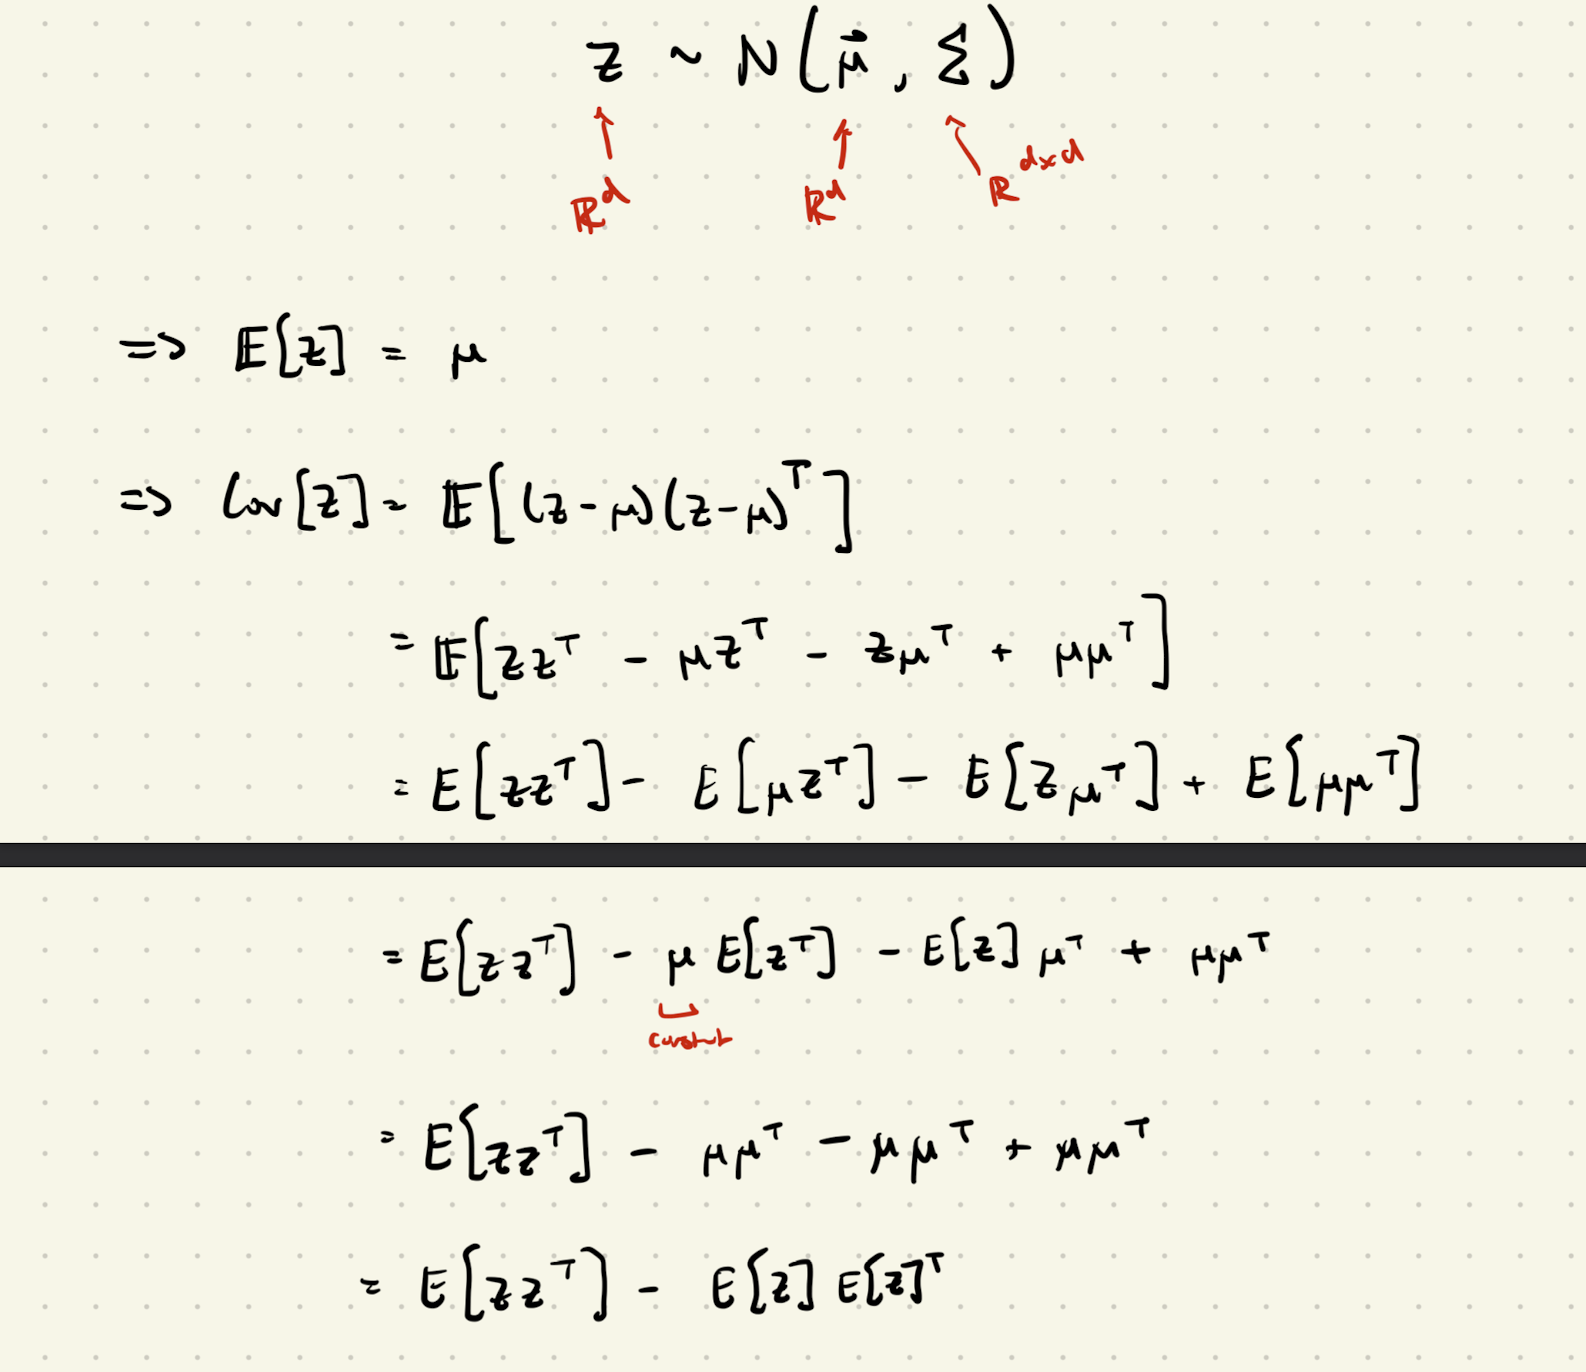 z ~ N(μ⃗, Σ)
ℝ^d ℝ^d ℝ^{d×d}
=> 𝔼[z] = μ
=> Cov[z] = 𝔼[(z-μ)(z-μ)^T]
= 𝔼[zz^T - μz^T - zμ^T + μμ^T]
= E[zz^T] - E[μz^T] - E[zμ^T] + E[μμ^T]
= E[zz^T] - μE[z^T] - E[z]μ^T + μμ^T
constant
= E[zz^T] - μμ^T - μμ^T + μμ^T
= E[zz^T] - E[z]E[z]^T